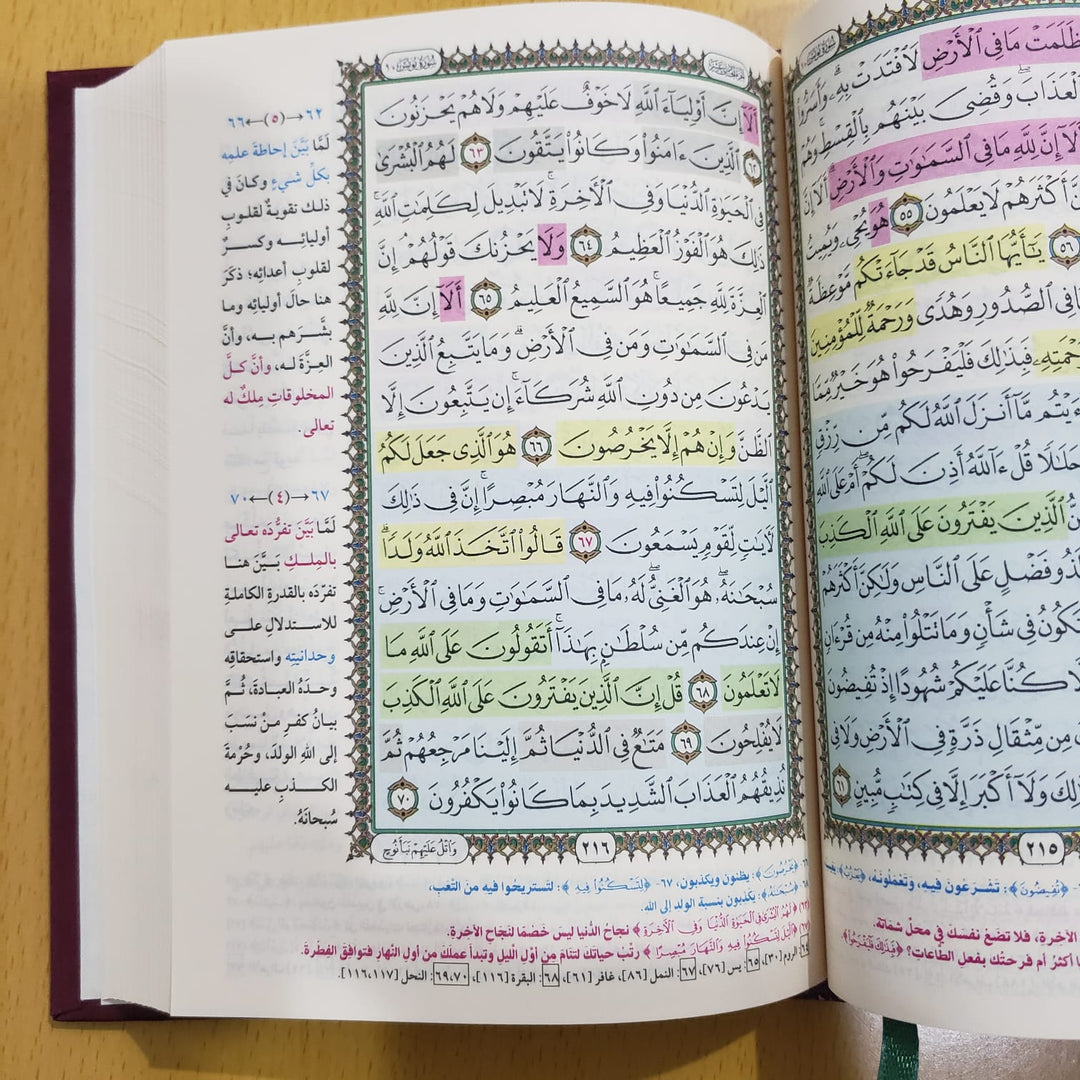 سورة يونس ١٠
أَلَآ إِنَّ أَوْلِيَآءَ اللَّهِ لَا خَوْفٌ عَلَيْهِمْ وَلَا هُمْ يَحْزَنُونَ
٦٢ الَّذِينَ ءَامَنُوا وَكَانُوا يَتَّقُونَ ٦٣ لَهُمُ الْبُشْرَىٰ
فِي الْحَيَوٰةِ الدُّنْيَا وَفِي الْأَخِرَةِ ۚ لَا تَبْدِيلَ لِكَلِمَاتِ اللَّهِ ۚ
ذَٰلِكَ هُوَ الْفَوْزُ الْعَظِيمُ ٦٤ وَلَا يَحْزُنكَ قَوْلُهُمْ ۘ إِنَّ
الْعِزَّةَ لِلَّهِ جَمِيعًا ۚ هُوَ السَّمِيعُ الْعَلِيمُ ٦٥ أَلَآ إِنَّ لِلَّهِ
مَن فِي السَّمَٰوَٰتِ وَمَن فِي الْأَرْضِ ۗ وَمَا يَتَّبِعُ الَّذِينَ
يَدْعُونَ مِن دُونِ اللَّهِ شُرَكَآءَ ۚ إِن يَتَّبِعُونَ إِلَّا
الظَّنَّ وَإِنْ هُمْ إِلَّا يَخْرُصُونَ ٦٦ هُوَ الَّذِي جَعَلَ لَكُمُ
الَّيْلَ لِتَسْكُنُوا فِيهِ وَالنَّهَارَ مُبْصِرًا ۚ إِنَّ فِي ذَٰلِكَ
لَأَيَٰتٍ لِّقَوْمٍ يَسْمَعُونَ ٦٧ قَالُوا اتَّخَذَ اللَّهُ وَلَدًا ۗ
سُبْحَٰنَهُۥ ۖ هُوَ الْغَنِيُّ ۖ لَهُۥ مَا فِي السَّمَٰوَٰتِ وَمَا فِي الْأَرْضِ ۚ
إِنْ عِندَكُم مِّن سُلْطَٰنٍ بِهَٰذَآ ۚ أَتَقُولُونَ عَلَى اللَّهِ مَا
لَا تَعْلَمُونَ ٦٨ قُلْ إِنَّ الَّذِينَ يَفْتَرُونَ عَلَى اللَّهِ الْكَذِبَ
لَا يُفْلِحُونَ ٦٩ مَتَٰعٌ فِي الدُّنْيَا ثُمَّ إِلَيْنَا مَرْجِعُهُمْ ثُمَّ
نُذِيقُهُمُ الْعَذَابَ الشَّدِيدَ بِمَا كَانُوا يَكْفُرُونَ ٧٠
وَاتْلُ عَلَيْهِمْ نَبَأَ نُوحٍ
٢١٦
٦٢→(٥)←٦٦
لَمَّا بَيَّنَ إحاطةَ علمِه
بكلِّ شيءٍ وكانَ في
ذلك تقويةٌ لقلوبِ
أوليائِه وكسرٌ
لقلوبِ أعدائِه؛ ذكرَ
هنا حالَ أوليائِه وما
بشَّرَهم به، وأنَّ
العزَّةَ له، وأنَّ كلَّ
المخلوقاتِ مِلكٌ له
تعالى.
٦٧→(٤)←٧٠
لَمَّا بَيَّنَ تفرُّدَه تعالى
بالمِلكِ بَيَّنَ هنا
تفرُّدَه بالقدرةِ الكاملةِ
للاستدلالِ على
وحدانيتِه واستحقاقِه
وحدَهُ العبادةَ، ثُمَّ
بيانُ كفرِ منْ نسَبَ
إلى اللهِ الولدَ، وحُرْمةَ
الكذبِ عليه
سُبحانَهُ.
﴿يَخْرُصُونَ﴾: يظنون ويكذبون، ٦٧- ﴿لِتَسْكُنُوا فِيهِ﴾: لتستريحُوا فيه من التَّعَب،
﴿سُبْحَانَهُ﴾: يكذبون بنسبة الولد إلى الله.
﴿لَهُمُ الْبُشْرَىٰ فِي الْحَيَوٰةِ الدُّنْيَا وَفِي الْأَخِرَةِ﴾ نجاحُ الدُّنيا ليسَ خَصْمًا لنَجَاحِ الآخرةِ.
﴿الَّيْلَ لِتَسْكُنُوا فِيهِ وَالنَّهَارَ مُبْصِرًا﴾ رتِّبْ حياتَك لتنَامَ مِن أوَّلِ الليلِ وتبدأ عملَكَ من أولِ النَّهارِ فتوافِقَ الفِطْرةَ.
الروم [٣٠]، ٦٥: يس [٧٦]، ٦٧: النمل [٨٦]، غافر [٦١]، ٦٨: البقرة [١١٦]، ٦٩،٧٠: النحل [١١٦،١١٧].
ظَلَمَتْ مَا فِي الْأَرْضِ لَافْتَدَتْ بِهِۦ ۗ وَأَسَرُّوا
الْعَذَابَ ۖ وَقُضِيَ بَيْنَهُم بِالْقِسْطِ ۚ وَهُمْ
أَلَآ إِنَّ لِلَّهِ مَا فِي السَّمَٰوَٰتِ وَالْأَرْضِ ۗ أَلَآ إِنَّ
أَكْثَرَهُمْ لَا يَعْلَمُونَ ٥٥ هُوَ يُحْيِۦ وَيُمِيتُ
٥٦ يَٰٓأَيُّهَا النَّاسُ قَدْ جَآءَتْكُم مَّوْعِظَةٌ
فِي الصُّدُورِ وَهُدًى وَرَحْمَةٌ لِّلْمُؤْمِنِينَ
فَبِذَٰلِكَ فَلْيَفْرَحُوا هُوَ خَيْرٌ مِّمَّا
مَّآ أَنزَلَ اللَّهُ لَكُم مِّن رِّزْقٍ
حَلَٰلًا قُلْ ءَآللَّهُ أَذِنَ لَكُمْ ۖ أَمْ عَلَى اللَّهِ
الَّذِينَ يَفْتَرُونَ عَلَى اللَّهِ الْكَذِبَ
فَضْلٍ عَلَى النَّاسِ وَلَٰكِنَّ أَكْثَرَهُمْ
تَكُونُ فِي شَأْنٍ وَمَا تَتْلُوا مِنْهُ مِن قُرْءَانٍ
كُنَّا عَلَيْكُمْ شُهُودًا إِذْ تُفِيضُونَ
مِن مِّثْقَالِ ذَرَّةٍ فِي الْأَرْضِ وَلَا فِي
وَلَآ أَكْبَرَ إِلَّا فِي كِتَٰبٍ مُّبِينٍ ٦١
٢١٥
﴿تُفِيضُونَ﴾: تَشْرَعُونَ فيه، وَتَعْمَلُونَهُ،
الآخرةِ، فلا تضَعْ نفسَكَ في محلِّ شماتَة.
أكثرُ أم فرحتُك بفعلِ الطاعاتِ؟ ﴿فَبِذَٰلِكَ فَلْيَفْرَحُوا﴾.